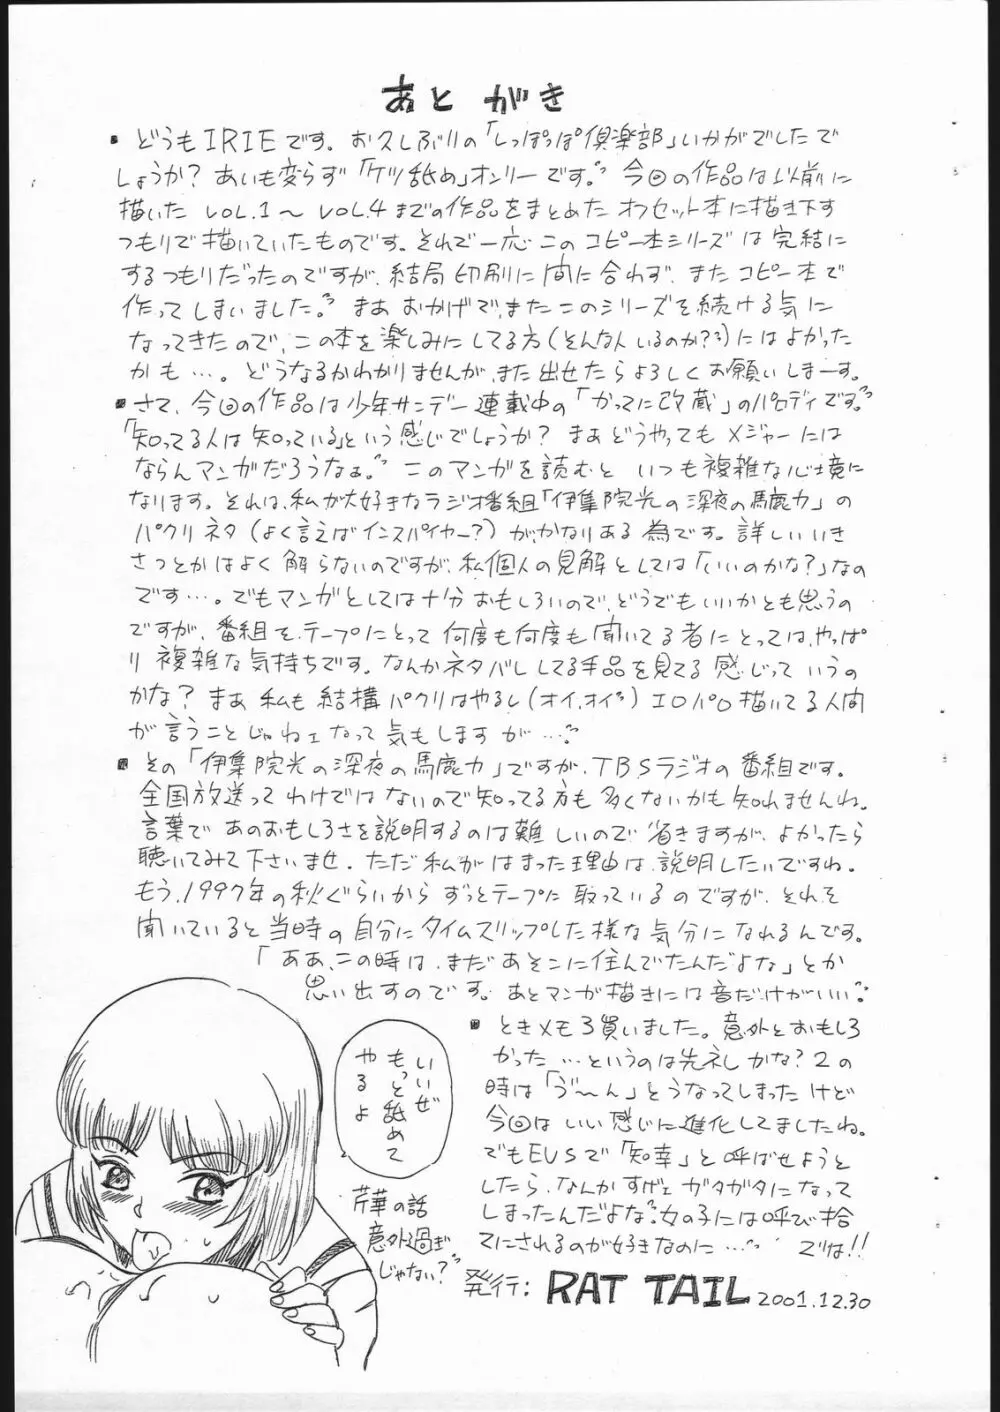 あとがき
・どうもIRIEです。お久しぶりの「しっぽっぽ倶楽部」いかがでしたで
しょうか？あいも変らず「ケツ舐め」オンリーです。今回の作品は以前に
描いた VOL.1〜VOL.4までの作品をまとめた オフセット本に描き下す
つもりで描いていたものです。それで一応このコピー本シリーズは完結に
するつもりだったのですが、結局印刷に間に合わず、またコピー本で
作ってしまいました。まあおかげで、またこのシリーズを続ける気に
なってきたので、この本を楽しみにしてる方(そんな人いるのか？)にはよかった
かも…。どうなるかわかりませんが、また出せたらよろしくお願いしまーす。
・さて、今回の作品は少年サンデー連載中の「かってに改蔵」のパロディです。
「知ってる人は知っている」という感じでしょうか？まぁどうやってもメジャーには
ならんマンガだろうなぁ。このマンガを読むといつも複雑な心境に
なります。それは、私が大好きなラジオ番組「伊集院光の深夜の馬鹿力」の
パクリネタ(よく言えばインスパイヤー？)が、かなりある為です。詳しいいき
さつとかはよく解らないのですが、私個人の見解としては「いいのかな？」なの
です…。でもマンガとしては十分おもしろいので、どうでもいいかとも思うの
ですが、番組をテープにとって何度も何度も聞いてる者にとっては、やっぱ
り複雑な気持ちです。なんかネタバレしてる手品を見てる感じっていうの
かな？まぁ私も結構パクリはやるし(オイ、オイ)エロパロ描いてる人間
が言うことじゃねェなって気もしますが…。
・その「伊集院光の深夜の馬鹿力」ですが、TBSラジオの番組です。
全国放送ってわけではないので知ってる方も多くないかも知れませんね。
言葉であのおもしろさを説明するのは難しいので省きますが、よかったら
聴いてみて下さいませ。ただ私がはまった理由は、説明したいですね。
もう、1997年の秋ぐらいからずっとテープに取っているのですが、それを
聞いていると当時の自分にタイムスリップした様な気分になれるんです。
「ああ、この時は、まだあそこに住んでたんだよな」とか
思い出すのです。あとマンガ描きには音だけがいい。
・ときメモ3買いました。意外とおもしろ
かった…というのは失礼かな？2の
時は「う゛〜ん」とうなってしまったけど
今回はいい感じに進化してましたね。
でもEVSで「知幸」と呼ばせようと
したら、なんかすげェガタガタになって
しまったんだよな。女の子には呼び捨
てにされるのが好きなのに… でわ!!
いいぜ
もっと舐めて
やるよ
芹華の話
意外過ぎ
じゃない？
発行: RAT TAIL 2001.12.30